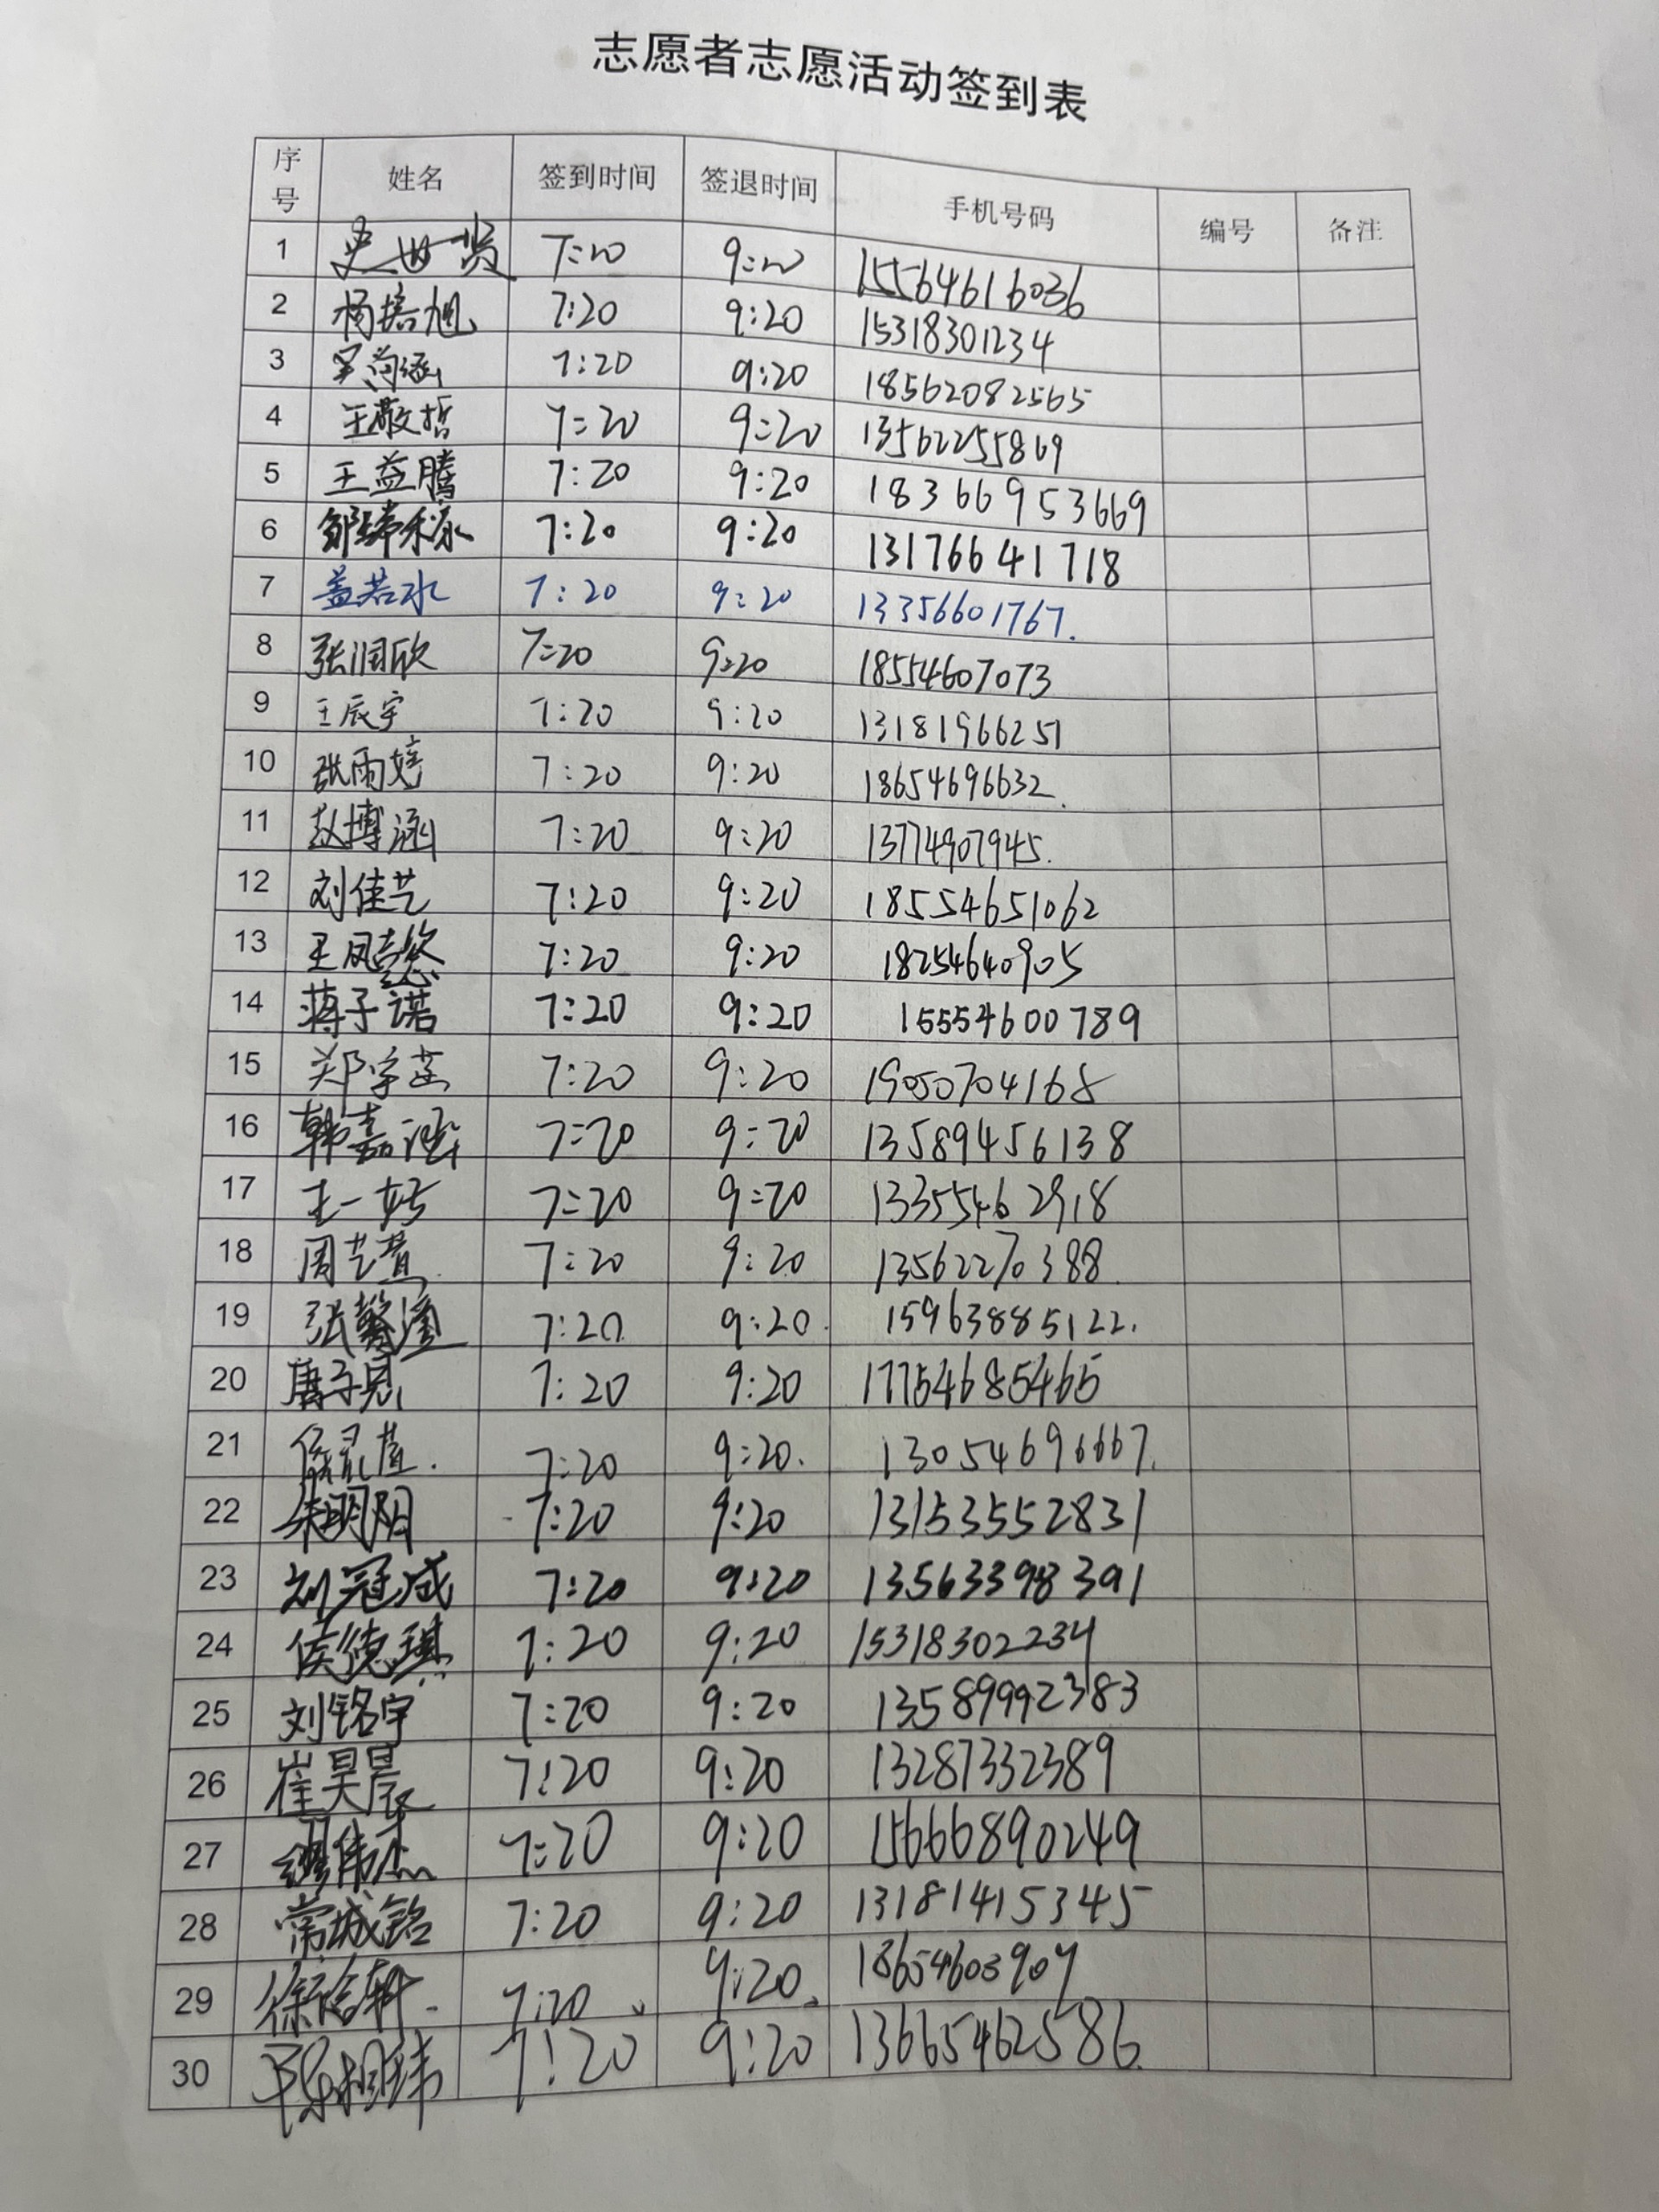 志愿者志愿活动签到表
序号 姓名 签到时间 签退时间 手机号码 编号 备注
1 史世贤 7:20 9:20 15564616036
2 杨培旭 7:20 9:20 15318301234
3 7:20 9:20 18562082565
4 王敬哲 7:20 9:20 13562255869
5 王益腾 7:20 9:20 18366953669
6 7:20 9:20 13176641718
7 盖若水 7:20 9:20 13356601767.
8 张润欣 7:20 9:20 18554607073
9 王辰宇 7:20 9:20 13181966251
10 张雨婷 7:20 9:20 18654696632.
11 赵博涵 7:20 9:20 13774907945.
12 刘佳艺 7:20 9:20 18554651062
13 7:20 9:20 18254640905
14 蒋子诺 7:20 9:20 15554600789
15 7:20 9:20 19050704168
16 韩嘉 7:20 9:20 13589456138
17 王一 7:20 9:20 13355462918
18 周艺萱 7:20 9:20 13562270388.
19 张馨 7:20 9:20. 15963885122.
20 唐子冕 7:20 9:20 17754685465
21 7:20 9:20. 13054696667.
22 朱明阳 7:20 9:20 13153552831
23 刘冠成 7:20 9:20 13563398391
24 侯德琪 7:20 9:20 15318302234
25 刘铭宇 7:20 9:20 13589992383
26 崔昊晨 7:20 9:20 13287332389
27 7:20 9:20 15666890249
28 常城铭 7:20 9:20 13181415345
29 7:20 9:20 18654603909
30 7:20 9:20 13665462586.